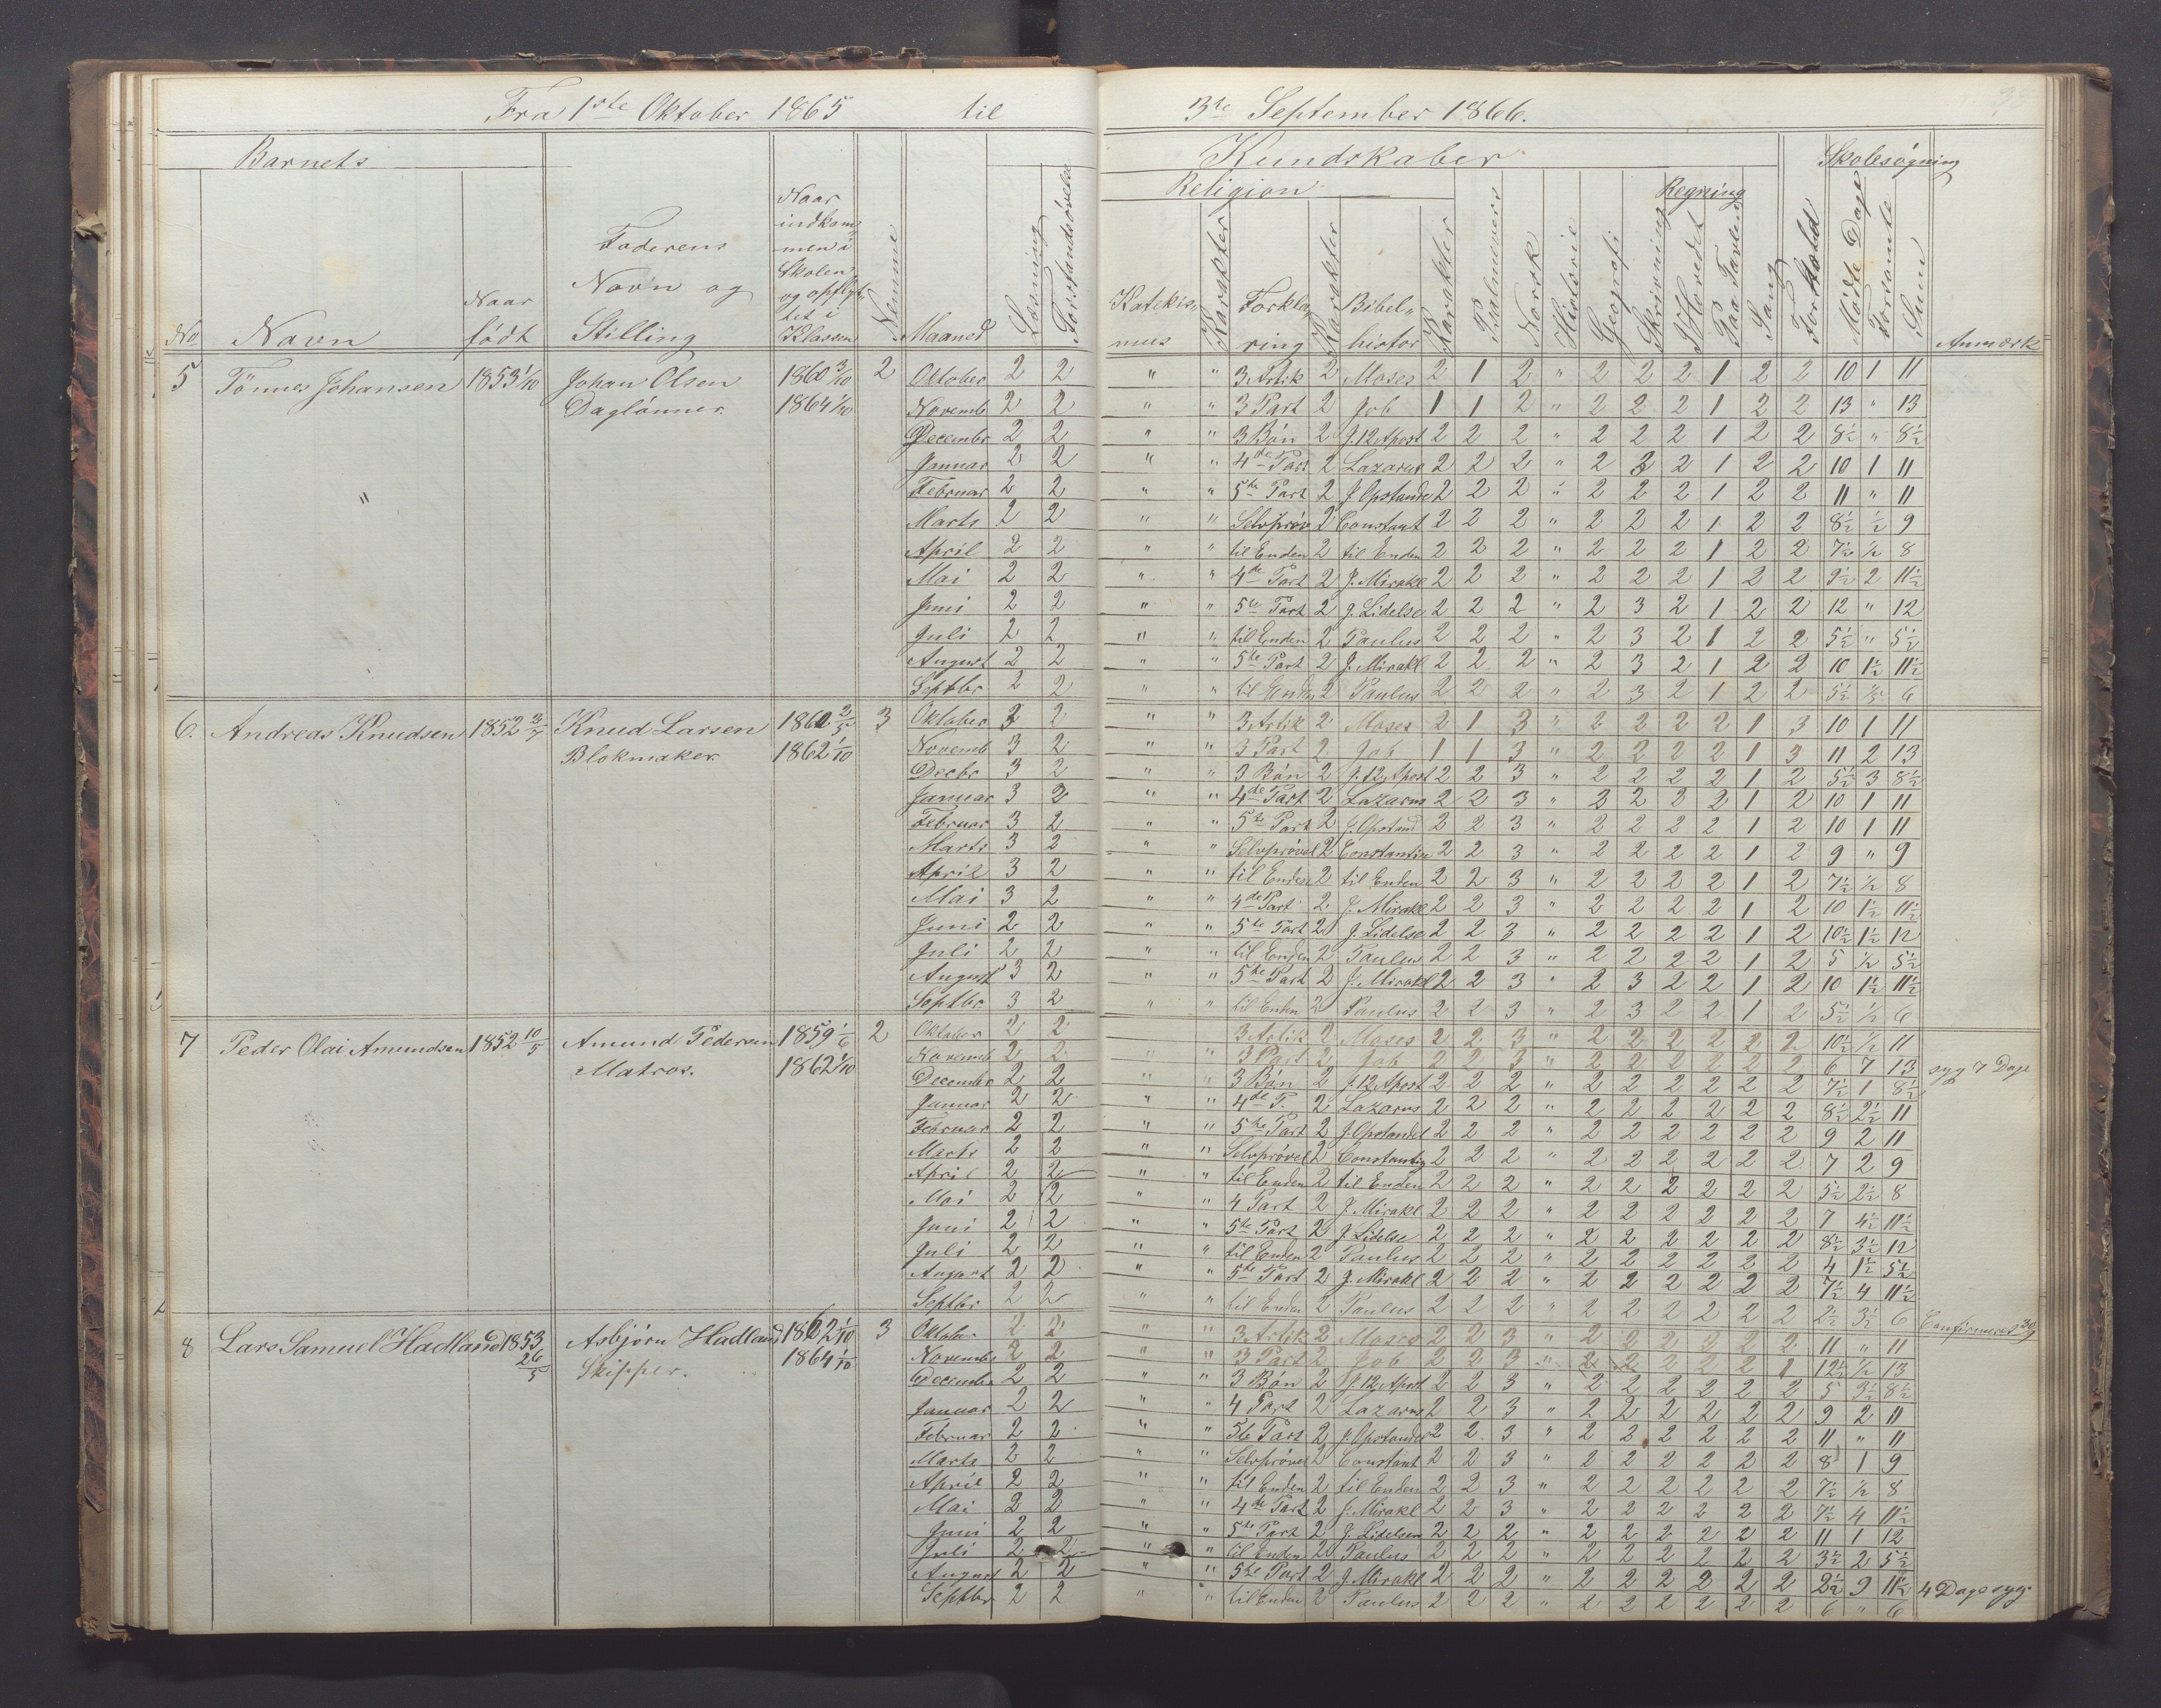 Fra 1ste Oktober 1865 til 3te September 1866.
Barnets Kundskaber Skolesøgning
Religion Regning
No Navn Naar født Faderens Navn og Stilling Naar indkommen i Skolen og opflyttet i Klassen Nemme Maaned Læsning Forstandsøvelse Katekismus Karakter Forklaring Karakter Bibelhistor Karakter Psalmevers Norsk Historie Geografi Skrivning I Hovedet Paa Tavlen Sang Forhold Mødte Dage Forsømte Sum Anmærk
5 Tönnes Johansen 1853 1/10 Johan Olsen 1860 3/10 2 Oktober 2 2 " " 3 Artik 2 Moses 2 1 2 " 2 2 2 1 2 2 10 1 11
Daglønner 1864 1/10 Novemb 2 2 " " 3 Part 2 Job 1 1 2 " 2 2 2 1 2 2 13 " 13
Decembr 2 2 " " 3 Bön 2 J. 12 Apost 2 2 2 " 2 2 2 1 2 2 8½ " 8½
Januar 2 2 " " 4de Part 2 Lazarus 2 2 2 " 2 3 2 1 2 2 10 1 11
" Februar 2 2 " " 5te Part 2 J. Opstande 2 2 2 " 2 2 2 1 2 2 11 " 11
Marts 2 2 " " Selvprøv 2 Constant 2 2 2 " 2 2 2 1 2 2 8½ ½ 9
April 2 2 " " til Enden 2 til Enden 2 2 2 " 2 2 2 1 2 2 7½ ½ 8
Mai 2 2 " " 4de Part 2 J. Mirakl 2 2 2 " 2 2 2 1 2 2 9½ 2 11½
Juni 2 2 " " 5te Part 2 J. Lidelse 2 2 2 " 2 3 2 1 2 2 12 " 12
Juli 2 2 " " til Enden 2 Paulus 2 2 2 " 2 3 2 1 2 2 5½ " 5½
August 2 2 " " 5te Part 2 J. Mirakl 2 2 2 " 2 3 2 1 2 2 10 1½ 11½
Septbr 2 2 " " til Enden 2 Paulus 2 2 2 " 2 3 2 1 2 2 5½ ½ 6
6. Andreas Knudsen 1852 Knud Larsen 1860 2/5 3 Oktober 3 2 " " 3 Artik 2 Moses 2 1 3 " 2 2 2 2 1 3 10 1 11
Blokmaker 1862 1/10 Novemb 3 2 " " 3 Part 2 Job 1 1 3 " 2 2 2 2 1 3 11 2 13
Decbr 3 2 " " 3 Bön 2 J. 12 Apost 2 2 3 " 2 2 2 2 1 2 5½ 3 8½
Januar 3 2 " " 4de Part 2 Lazarus 2 2 3 " 2 2 2 2 1 2 10 1 11
Februar 3 2 " " 5te Part 2 J. Opstand 2 2 3 " 2 2 2 2 1 2 10 1 11
Marts 3 2 " " Selvprøvel 2 Constantin 2 2 3 " 2 2 2 2 1 2 9 " 9
April 3 2 " " til Enden 2 til Enden 2 2 3 " 2 2 2 2 1 2 7½ ½ 8
Mai 3 2 " " 4de Part 2 J. Mirakl 2 2 3 " 2 2 2 2 1 2 10 1½ 11½
Juni 2 2 " " 5te Part 2 J. Lidelse 2 2 3 " 2 2 2 2 1 2 10½ 1½ 12
Juli 2 2 " " til Enden 2 Paulus 2 2 3 " 2 2 2 2 1 2 5 ½ 5½
August 3 2 " " 5te Part 2 J. Mirakl 2 2 3 " 2 3 2 2 1 2 10 1½ 11½
Septbr 3 2 " " til Enden 2 Paulus 2 2 3 " 2 3 2 2 1 2 5½ ½ 6
7 Peder Olai Amundsen 1852 10/5 Amund Pedersen 1859 1/6 2 Oktober 2 2 3 Artik 2 Moses 2 2 3 " 2 2 2 2 2 2 10½ ½ 11
Matros. 1862 1/10 Novemb 2 2 " " 3 Part 2 Job 2 2 3 " 2 2 2 2 2 2 6 7 13 syg 7 Dage
Decembr 2 2 " " 3 Bön 2 J. 12 Apost 2 2 2 " 2 2 2 2 2 2 7½ 1 8½
Januar 2 2 " " 4de P. 2 Lazarus 2 2 2 " 2 2 2 2 2 2 8½ 2½ 11
Februar 2 2 " " 5te Part 2 J. Opstandel 2 2 2 " 2 2 2 2 2 2 9 2 11
Marts 2 2 " " Selvprøvel 2 Constantin 2 2 2 " 2 2 2 2 2 2 7 2 9
April 2 2 " " til Enden 2 til Enden 2 2 2 " 2 2 2 2 2 2 5½ 2½ 8
Mai 2 2 " " 4 Part 2 J. Mirakl 2 2 2 " 2 2 2 2 2 2 7 4½ 11½
Juni 2 2 " " 5te Part 2 J. Lidelse 2 2 2 " 2 2 2 2 2 2 8½ 3½ 12
Juli 2 2 " " til Enden 2 Paulus 2 2 2 " 2 2 2 2 2 2 4 1½ 5½
August 2 2 " " 5te Part 2 J. Mirakl 2 2 2 " 2 2 2 2 2 2 7½ 4 11½
Septbr 2 2 " " til Enden 2 Paulus 2 2 2 " 2 2 2 2 2 2 2½ 3½ 6 Confirmeret 30/9
8 Lars Samuel Hadland 1853 26/5 Asbjørn Hadland 1862 1/10 3 Oktober 2 2 " " 3 Artik 2 Moses 2 2 3 " 2 2 2 2 2 2 11 " 11
Skipper. 1864 1/10 Novembr 2 2 " " 3 Part 2 Job 2 2 3 " 2 2 2 2 2 1 12½ ½ 13
Decembr 2 2 " " 3 Bön 2 J. 12 Apost 2 2 3 " 2 2 2 2 2 2 5 3½ 8½
Januar 2 2 " " 4 Part 2 Lazarus 2 2 3 " 2 2 2 2 2 2 9 2 11
Februar 2 2 " " 5te Part 2 J. Opstandel 2 2 3 " 2 2 2 2 2 2 11 " 11
Marts 2 2 " " Selvprøvel 2 Constant 2 2 3 " 2 2 2 2 2 2 8 1 9
April 2 2 " " til Enden 2 til Enden 2 2 3 " 2 2 2 2 2 2 7½ ½ 8
Mai 2 2 " " 4de Part 2 J. Mirakl 2 2 3 " 2 2 2 2 2 2 7½ 4 11½
Juni 2 2 " " 5te Part 2 J. Lidelsen 2 2 2 " 2 2 2 2 2 2 11 1 12
Juli 2 2 " " til Enden 2 Paulus 2 2 2 " 2 2 2 2 2 2 3½ 2 5½
August 2 2 " " 5te Part 2 J. Mirakl 2 2 2 " 2 2 2 2 2 2 2½ 9 11½ 4 Dage syg
Septbr 2 2 " " til Enden 2 Paulus 2 2 2 " 2 2 2 2 2 2 6 " 6